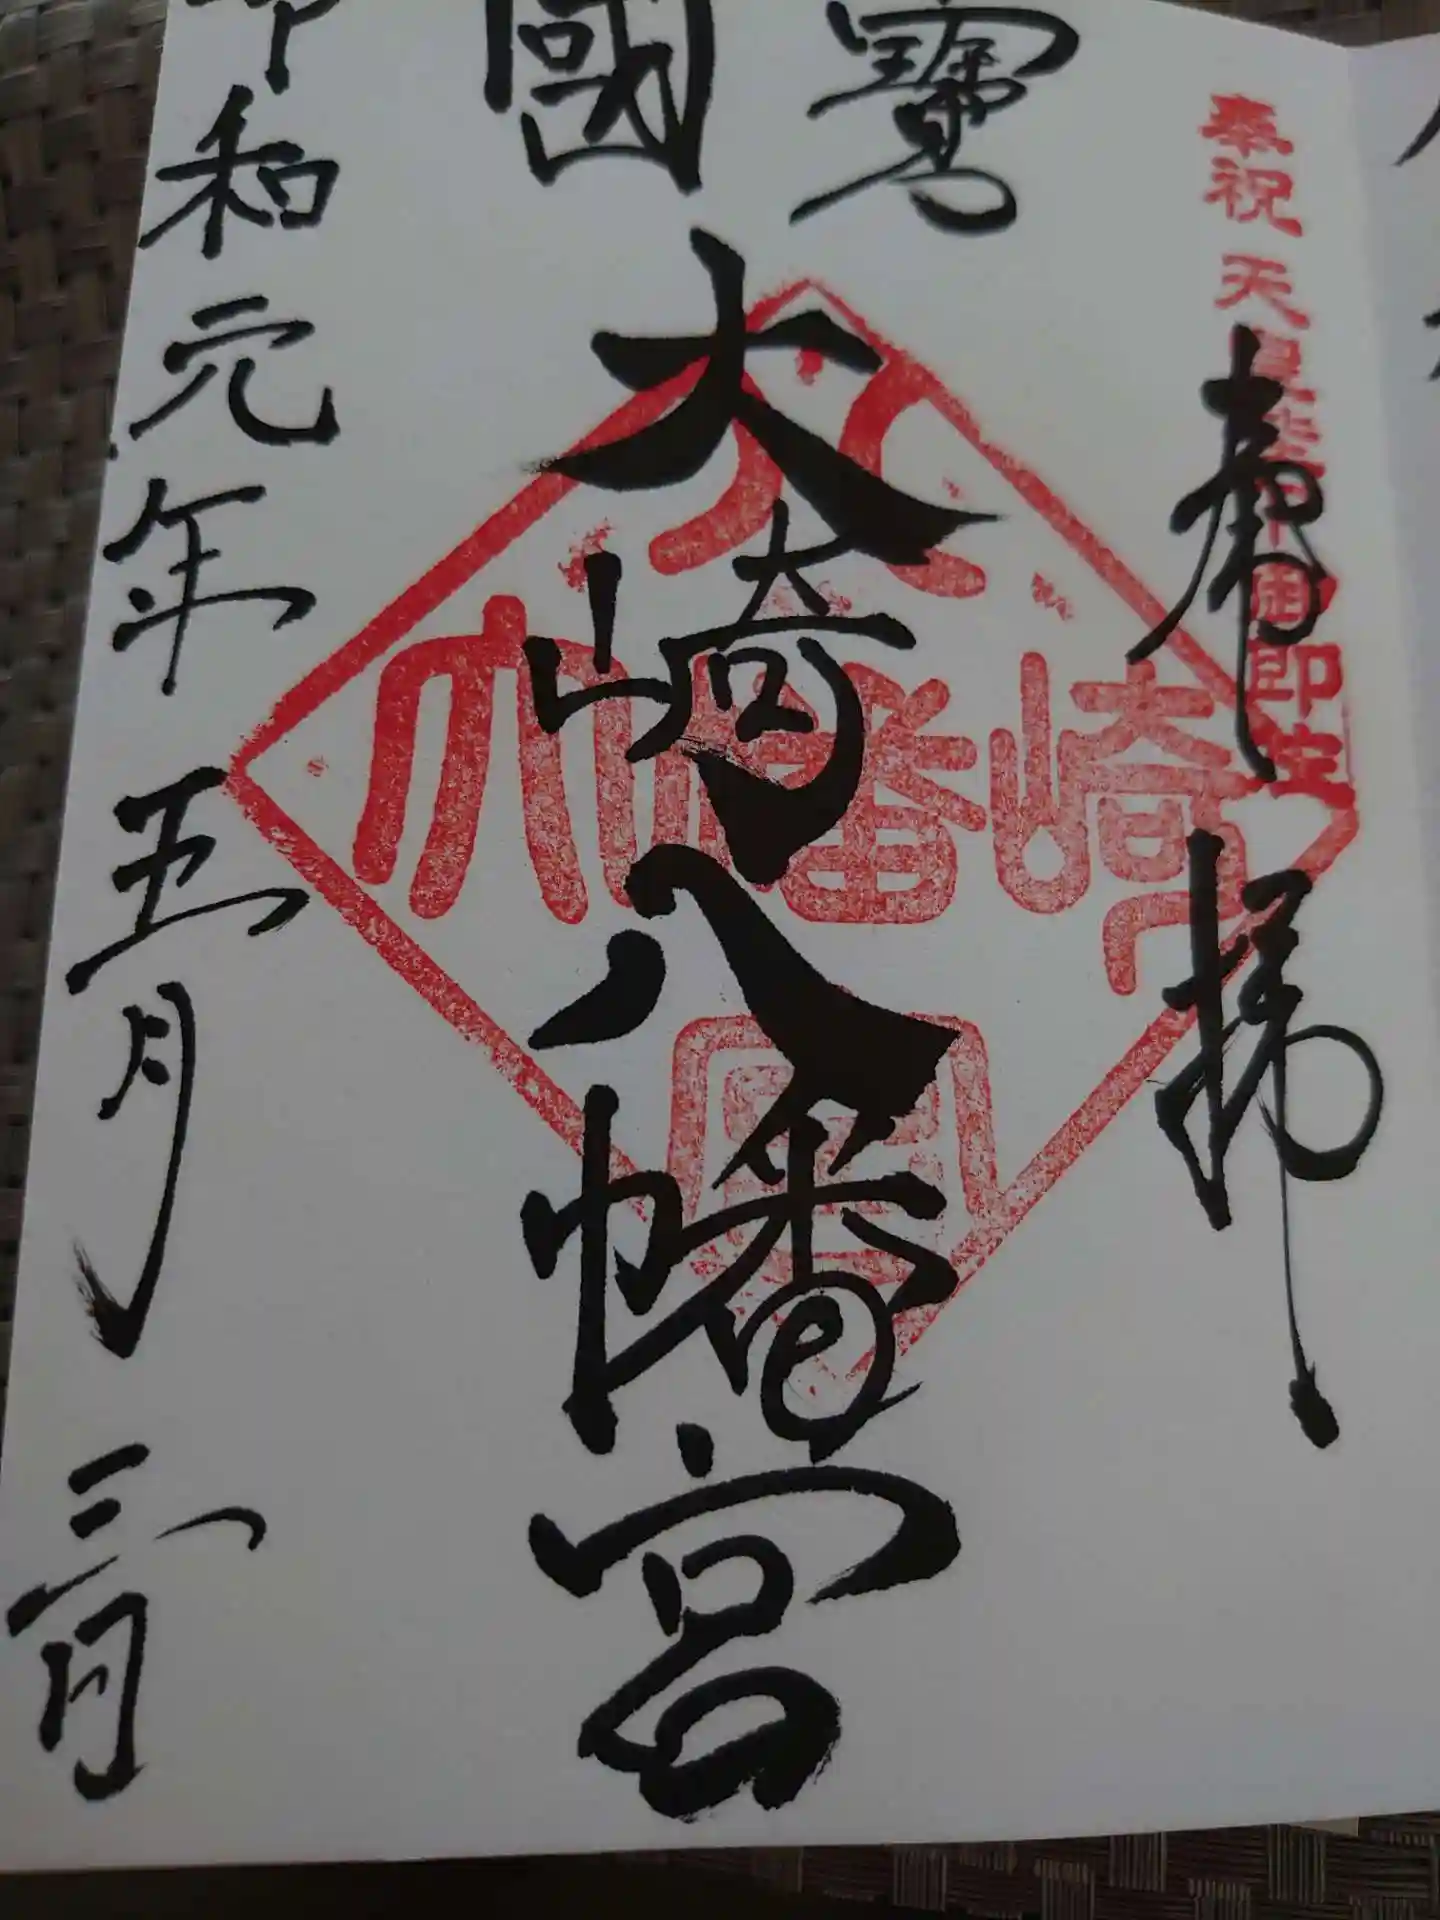 奉祝 天皇陛下御即位
奉拝
國寶
大崎八幡宮
大崎八幡宮
令和元年五月三日